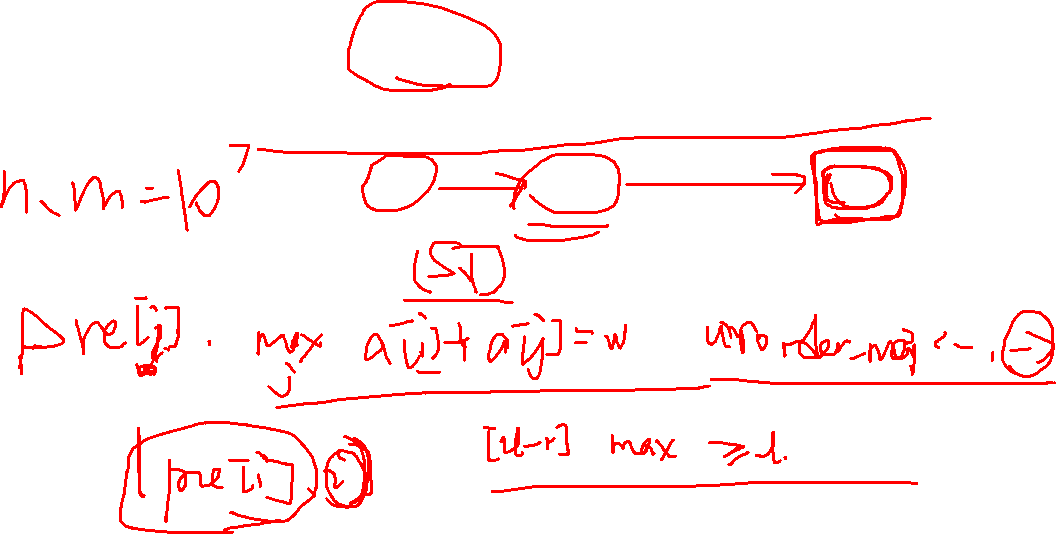 n、m=10^7
(ST)
pre[i]. max j a[i]+a[j]=w unorder_map<-,->
pre[i] i
[l-r] max ≥l.